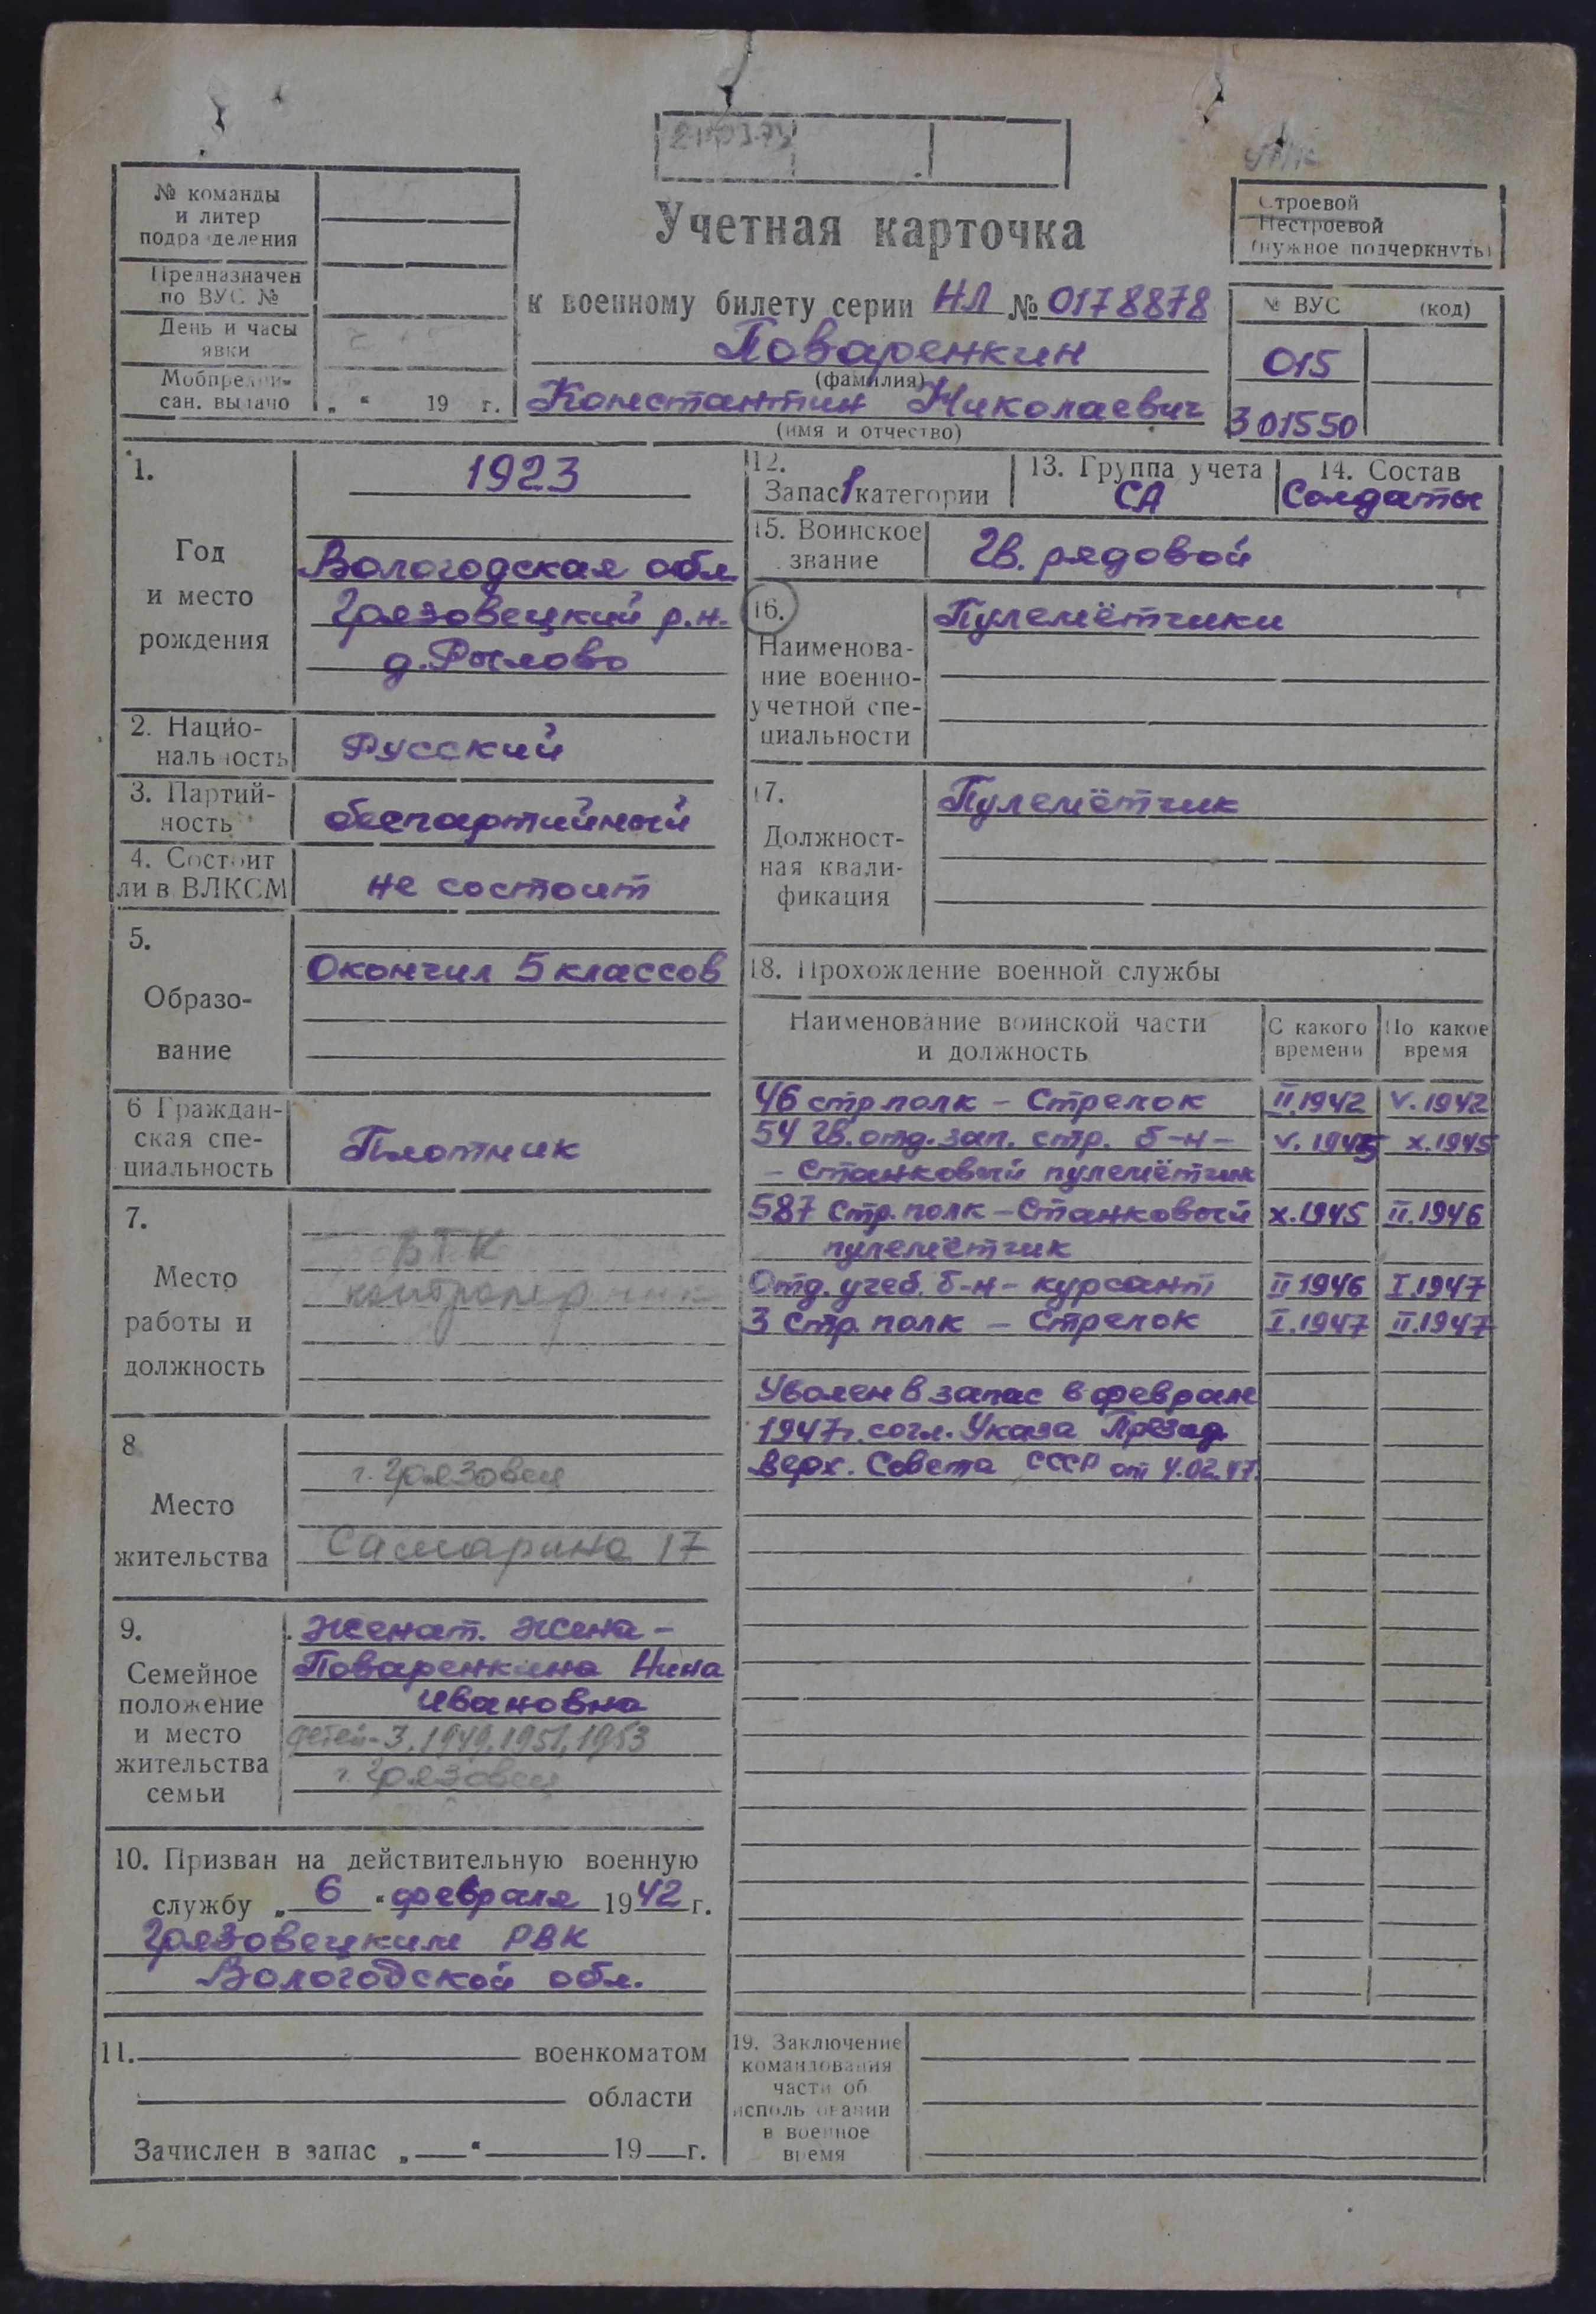 № команды
и литер
подразделения
Предназначен
по ВУС №
День и часы
явки
Мобпредпи-
сан. выдано „ “ 19 г.
Учетная карточка
к военному билету серии НЛ № 0178878
Поваренкин
(фамилия)
Константин Николаевич
(имя и отчество)
Строевой
Нестроевой
(нужное подчеркнуть)
№ ВУС (код)
015
301550
1.
Год
и место
рождения
1923
Вологодская обл
Грязовецкий р.н.
д. Рылово
2. Нацио-
нальность
Русский
3. Партий-
ность
беспартийный
4. Состоит
ли в ВЛКСМ
не состоит
5.
Образо-
вание
Окончил 5 классов
6 Граждан-
ская спе-
циальность
Плотник
7.
Место
работы и
должность
ВТК
контролер
8
Место
жительства
г. Грязовец
Самарина 17
9.
Семейное
положение
и место
жительства
семьи
Женат. Жена –
Поваренкина Нина
Ивановна
детей-3, 1949, 1951, 1953
г. Грязовец
10. Призван на действительную военную
службу „ 6 “ февраля 1942 г.
Грязовецким РВК
Вологодской обл.
11. военкоматом
области
Зачислен в запас „ “ 19 г.
12.
Запас 1 категории
13. Группа учета
СА
14. Состав
Солдаты
15. Воинское
звание
Гв. рядовой
16.
Наименова-
ние военно-
учетной спе-
циальности
Пулемётчики
17.
Должност-
ная квали-
фикация
Пулемётчик
18. Прохождение военной службы
Наименование воинской части
и должность
С какого
времени
По какое
время
46 стр полк – Стрелок II.1942 V.1942
54 гв. отд. зап. стр. б-н – V.1945 X.1945
– Станковый пулемётчик
587 Стр. полк – Станковый X.1945 II.1946
пулемётчик
Отд. учеб. б-н – курсант II 1946 I.1947
3 Стр. полк – Стрелок I.1947 II.1947
Уволен в запас в феврале
1947г. согл. Указа Презид
Верх. Совета СССР от 4.02.47.
19. Заключение
командования
части об
использовании
в военное
время